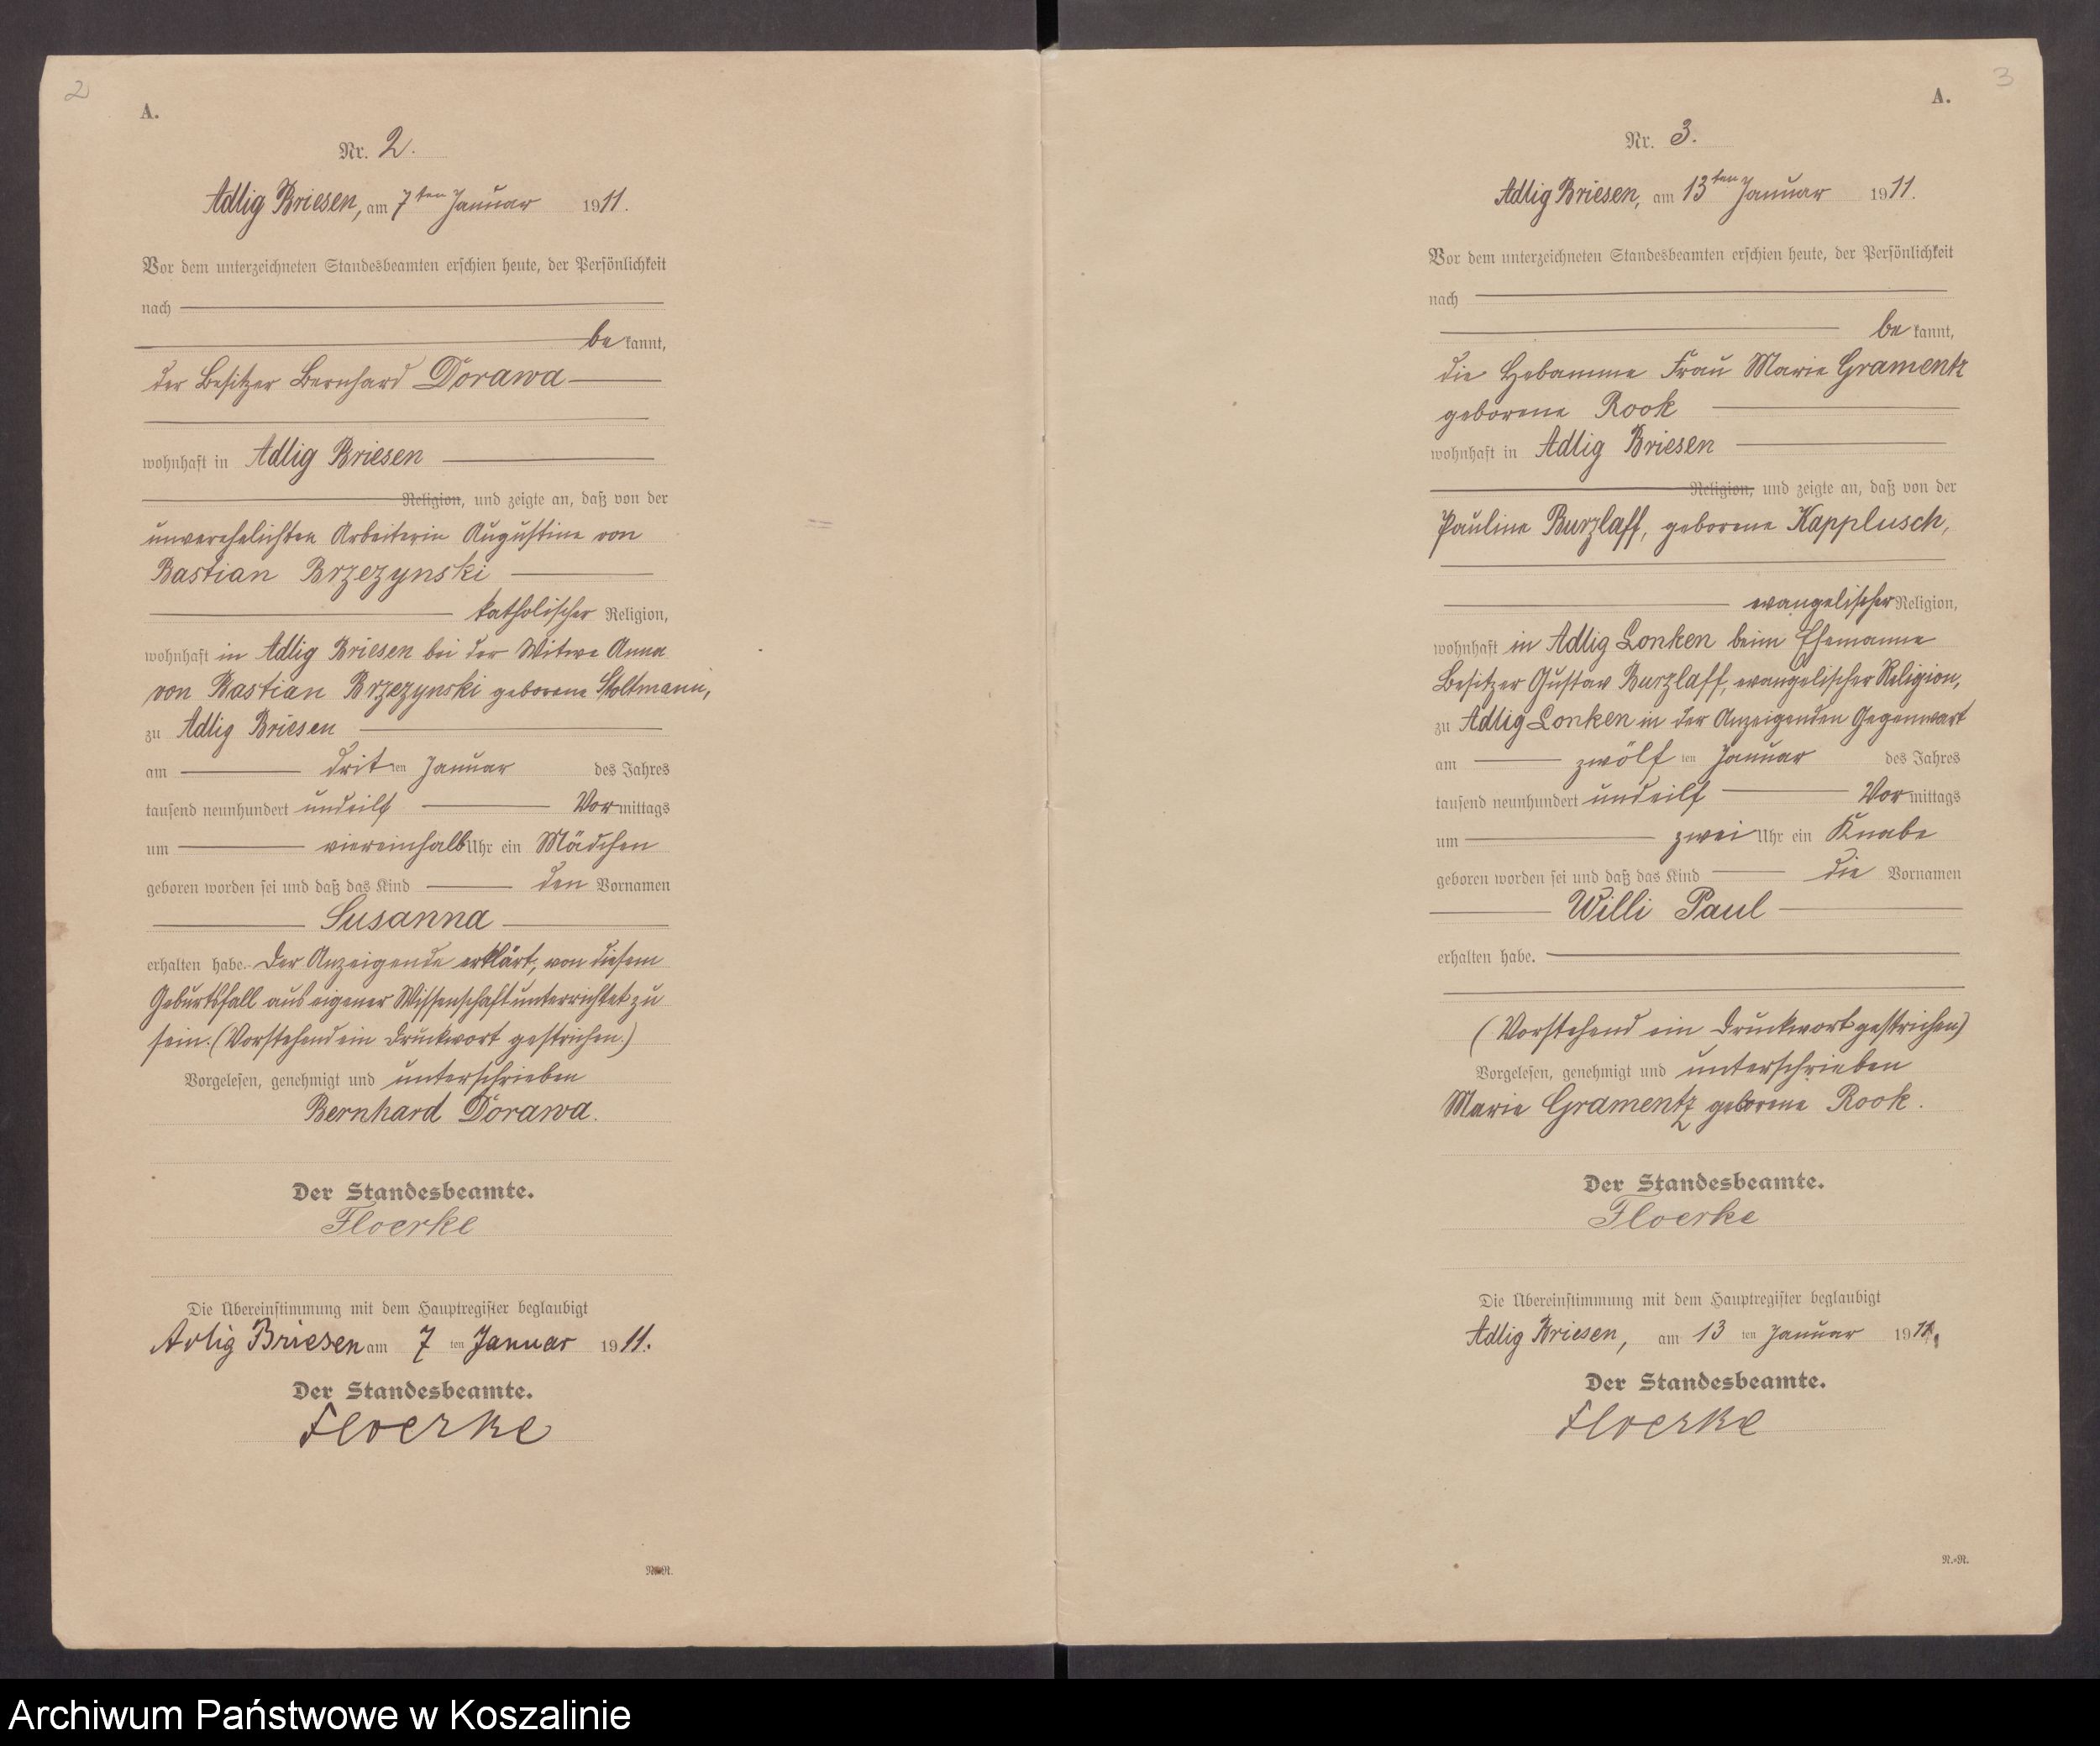 2
A.
Nr. 2.
Adlig Briesen, am 7ten Januar 1911.
Vor dem unterzeichneten Standesbeamten erschien heute, der Persönlichkeit
nach
be kannt,
der Besitzer Bernhard Dorawa
wohnhaft in Adlig Briesen
Religion, und zeigte an, daß von der
unverehelichten Arbeiterin Augustine von
Bastian Brzezynski
katholischer Religion,
wohnhaft in Adlig Briesen bei der Witwe Anna
von Bastian Brzezynski geborene Stoltmann,
zu Adlig Briesen
am dritten Januar des Jahres
tausend neunhundert undeilf Vormittags
um viereinhalb Uhr ein Mädchen
geboren worden sei und daß das Kind den Vornamen
Susanna
erhalten habe. Der Anzeigende erklärt, von diesem
Geburtsfall aus eigener Wissenschaft unterrichtet zu
sein. (Vorstehend ein Druckwort gestrichen.)
Vorgelesen, genehmigt und unterschrieben
Bernhard Dorawa.
Der Standesbeamte.
Floerke
Die Übereinstimmung mit dem Hauptregister beglaubigt
Adlig Briesen am 7 ten Januar 1911.
Der Standesbeamte.
Floerke
3
A.
Nr. 3.
Adlig Briesen, am 13ten Januar 1911.
Vor dem unterzeichneten Standesbeamten erschien heute, der Persönlichkeit
nach
be kannt,
die Hebamme Frau Marie Gramentz
geborene Rook
wohnhaft in Adlig Briesen
Religion, und zeigte an, daß von der
Pauline Burzlaff, geborene Kapplusch,
evangelischer Religion,
wohnhaft in Adlig Lonken beim Ehemanne
Besitzer Gustav Burzlaff, evangelischer Religion,
zu Adlig Lonken in der Anzeigenden Gegenwart
am zwölf ten Januar des Jahres
tausend neunhundert undeilf Vormittags
um zwei Uhr ein Knabe
geboren worden sei und daß das Kind die Vornamen
Willi Paul
erhalten habe.
(Vorstehend ein Druckwort gestrichen)
Vorgelesen, genehmigt und unterschrieben
Marie Gramentz geborene Rook.
Der Standesbeamte.
Floerke
Die Übereinstimmung mit dem Hauptregister beglaubigt
Adlig Briesen, am 13 ten Januar 1911.
Der Standesbeamte.
Floerke
R.-R.
Archiwum Państwowe w Koszalinie